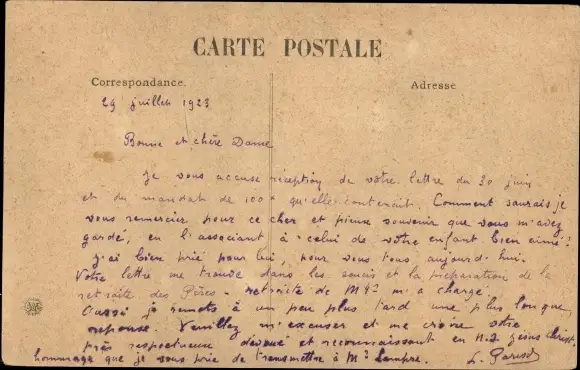 CARTE POSTALE
Correspondance.
Adresse
29 juillet 1923
Bonne et chère Dame
Je vous accuse réception de votre lettre du 30 juin
et du mandat de 100 qu'elle contenait. Comment saurais je
vous remercier pour ce cher et pieux souvenir que vous m'avez
gardé, en l'associant à celui de votre enfant bien aimé?
J'ai bien prié pour lui, pour vous tous aujourd'hui.
Votre lettre me trouve dans les soucis et la préparation de la
retraite des Pères - retraite de m'a chargé.
Aussi je remets à un peu plus tard une plus longue
réponse. Veuillez m'excuser et me croire votre
très respectueux dévoué et reconnaissant en N.S. Jésus Christ
hommage que je vous prie de transmettre à Mr
L.